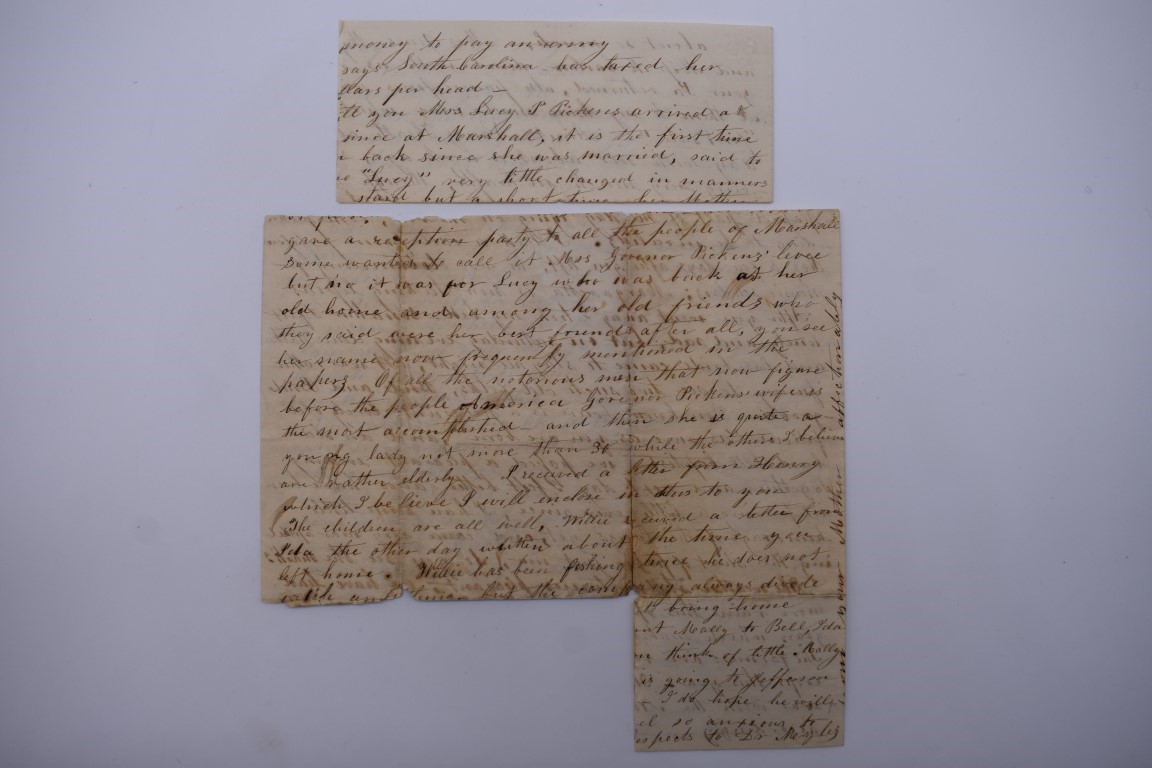 money to pay an army
says South Carolina has taxed her
llars per head –
ll you Mrs Lucy P Pickens arrived a
since at Marshall, it is the first time
back since she was married, said to
"Lucy" very little changed in manners
stand but a short time her Mother
gave a reception party to all the people of Marshall
Some wanted to call it Mrs Govenor Pickens' levee
but no it was for Lucy who was back at her
old home and among her old friends who
they said were her best friends after all, you see
her name now frequently mentioned in the
papers Of all the notorious men that now figure
before the people America Govenor Pickens wife is
the most accomplished – and then she is quite a
young lady not more than 30 while the others I believe
are rather elderly I received a letter from Henry
which I believe I will enclose in this to you
The children are all well, Willie received a letter from
Ida the other day written about the time you
left home. Willie has been fishing twice he does not
but the comp ny always divide
being home
nt Molly to Bell, Ida
think of little Molly
is going to Jefferson
I do hope he will
el so anxious to
espects to Dr
your Mother affectionately